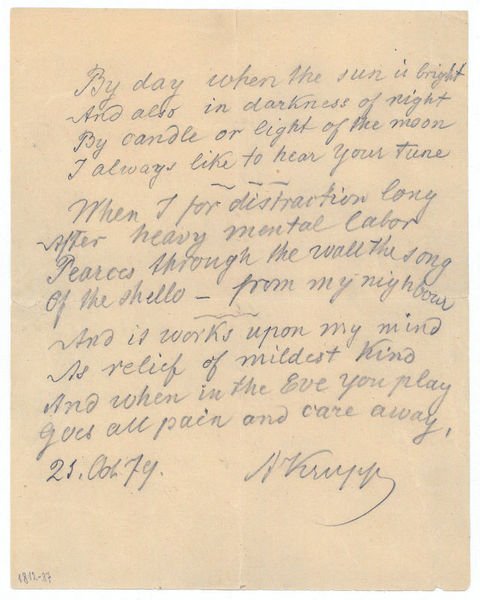 By day when the sun is bright
And also in darkness of night
By candle or light of the moon
I always like to hear your tune
When I for distraction long
After heavy mental labor
Pearces through the wall the song
Of the shello – from my nighbour
And it works upon my mind
As relief of mildest kind
And when in the Eve you play
Goes all pain and care away,
21. Oct 79. A Krupp
1812-87